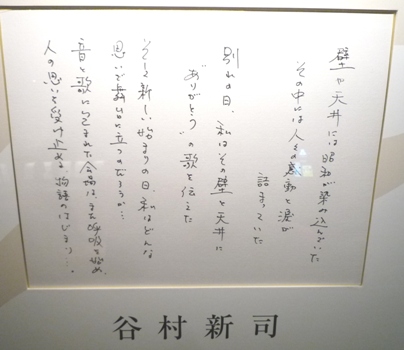 壁や天井には昭和が染み込んでいた
その中には人々の感動と涙が
詰まっていた
別れの日、私はその壁と天井に
"ありがとう"の歌を伝えた
そして新しい始まりの日、私はどんな
思いで舞台に立つのだろうか…
音と歌に包まれた会場はまた呼吸を始め、
人の思いを受け止める物語のはじまり…。
谷村新司